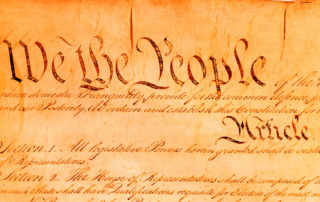 We the People of the
insure domestic Tranquility, provide for the common defence,
and our Posterity, do ordain and establish this Constitution for
Article
Section 1. All legislative Powers herein granted shall be vested
of Representatives.
Section 2. The House of Representatives shall be composed of
in each State shall have the Qualifications requisite for Electors of the most